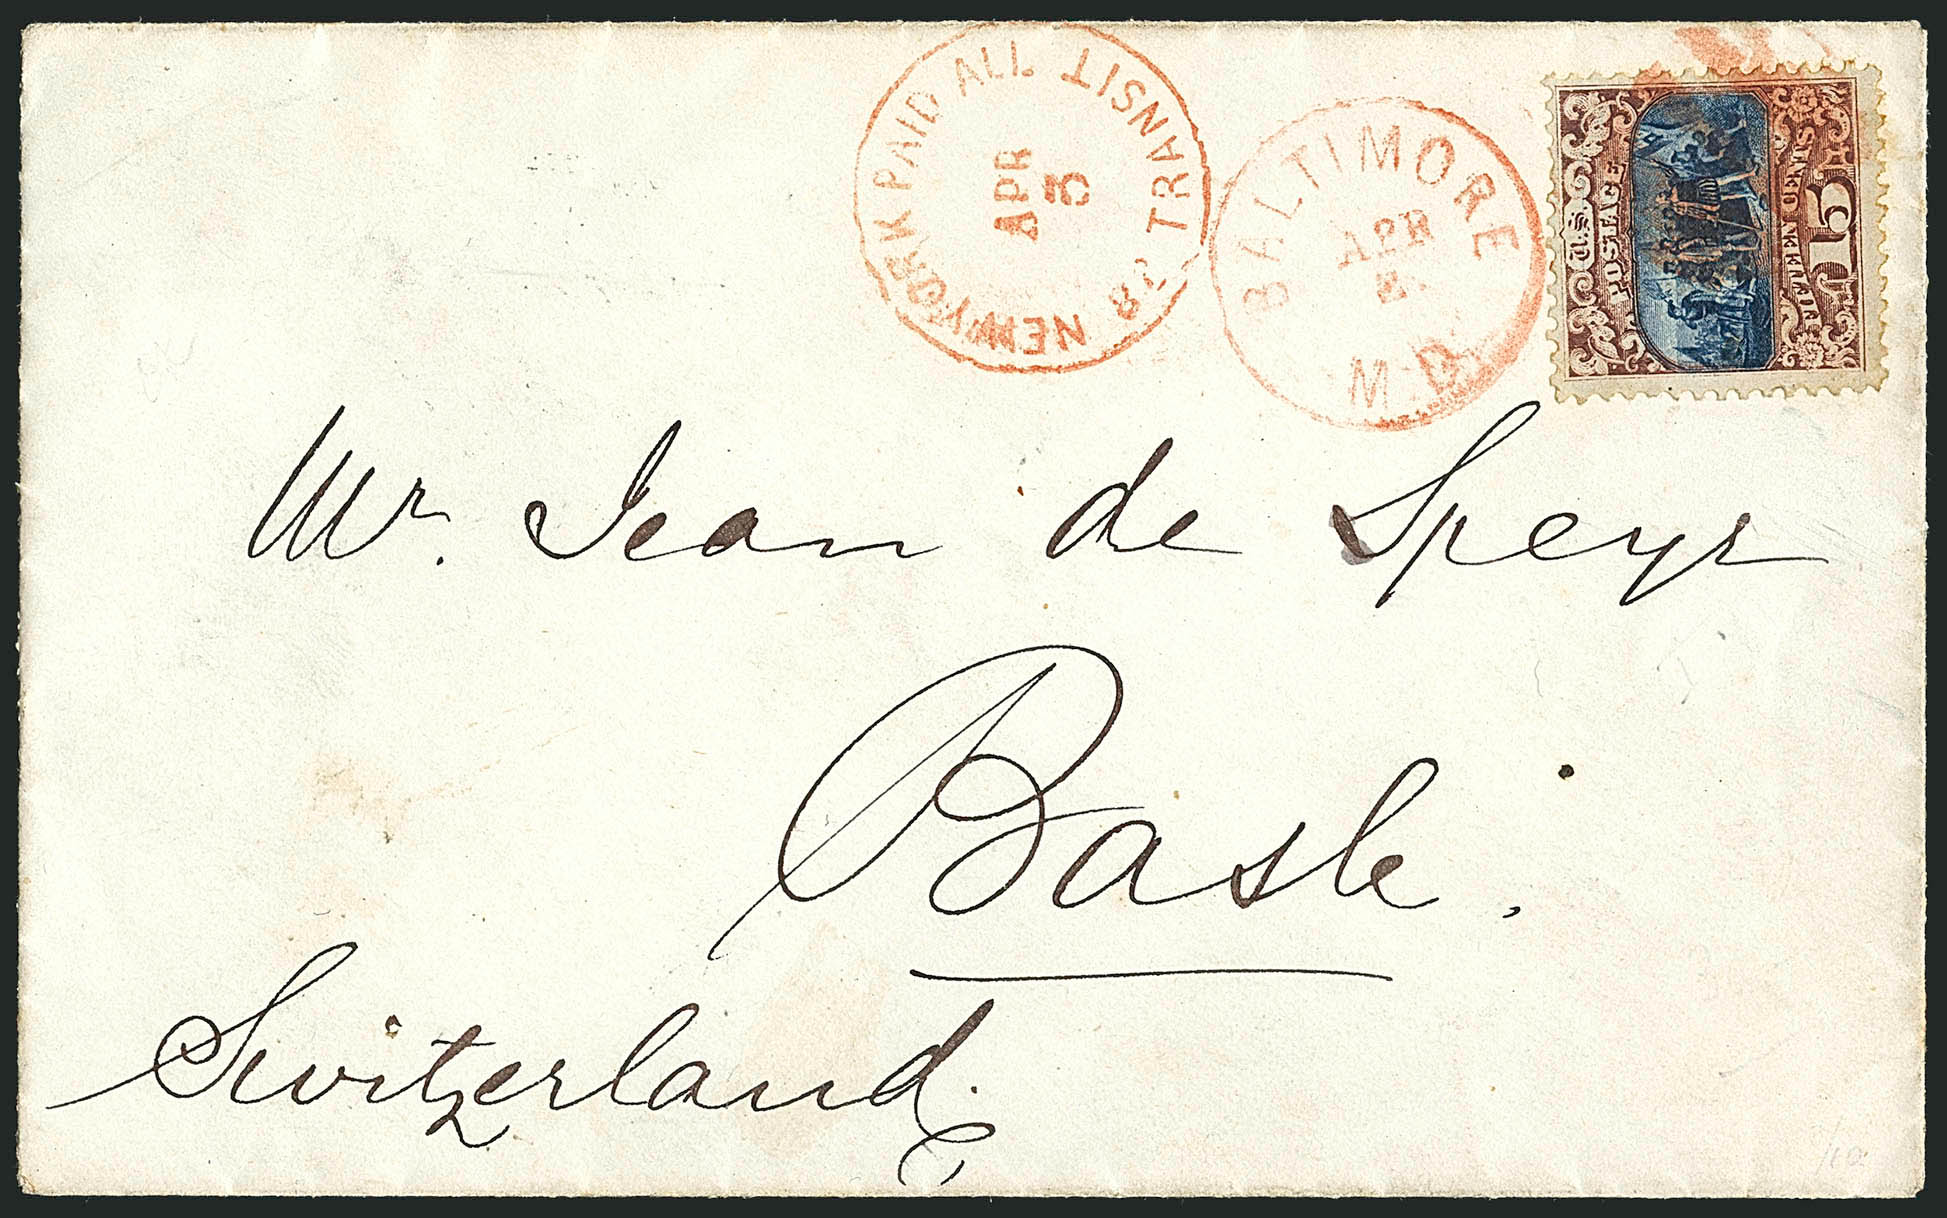 NEW YORK PAID ALL BR TRANSIT
APR
3
BALTIMORE
APR
2
MD.
U.S.
POSTAGE
FIFTEEN CENTS
15
Mr. Jean de Speyr
Basle.
Switzerland.